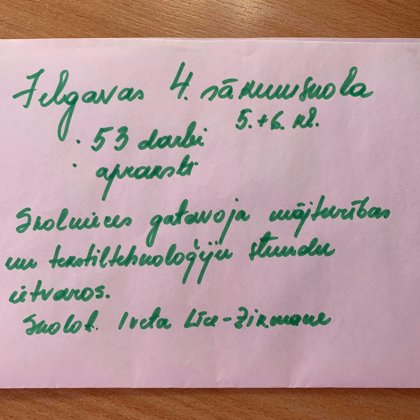 Jelgavas 4. sākumskola
5.+6. kl.
· 53 darbi
· apraksti
Skolnieces gatavoja mājturības
un tekstiltehnoloģiju stundu
ietvaros.
Skolot. Iveta Līce-Zirmane